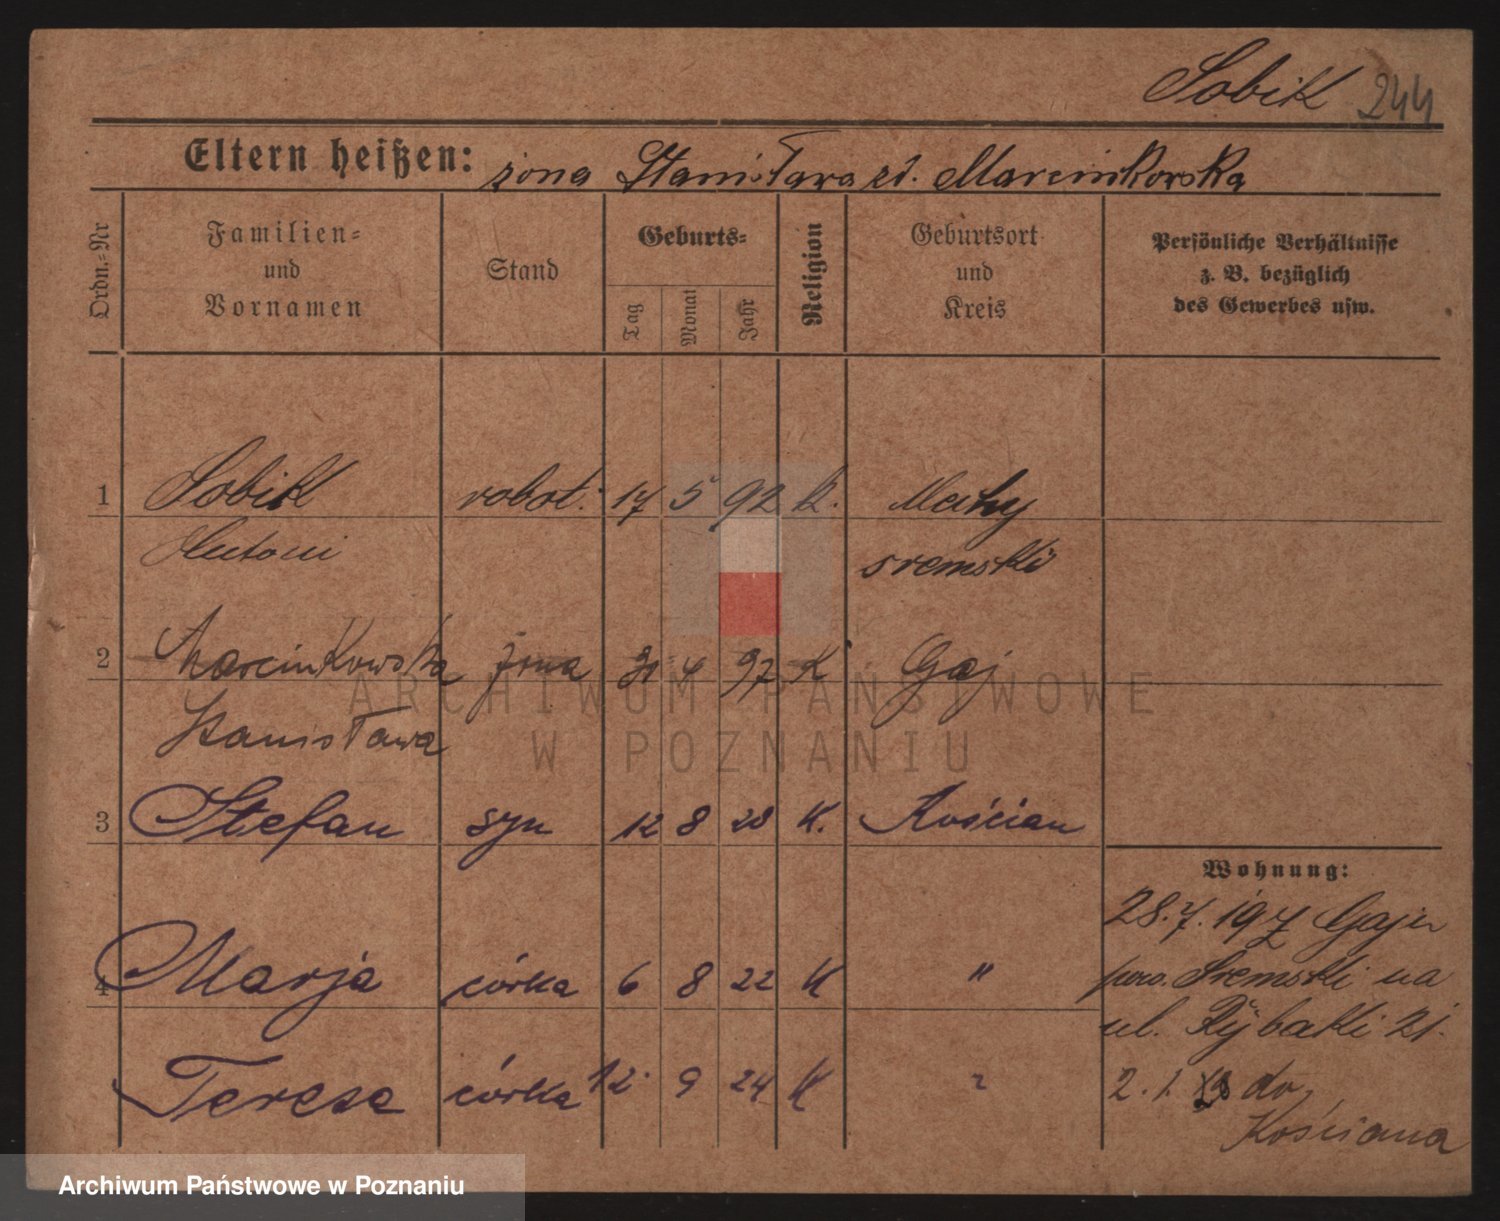 Sobik 244
Eltern heißen: żona Stanisława zd. Marcinkowska
Ordn.-Nr
Familien-
und
Vornamen
Stand
Geburts-
Tag
Monat
Jahr
Religion
Geburtsort
und
Kreis
Persönliche Verhältnisse
z. B. bezüglich
des Gewerbes usw.
1 Sobik robot. 17 5 92 k.
Antoni śremski
2 Marcinkowska żona 4 97 K Gaj
Stanisława
3 Stefan syn 12 8 20 K. Kościan
Wohnung:
28.7.19 z Gaju
4 Marja córka 6 8 22 K "
pow. Śremski na
ul. Rybaki 21.
Teresa córka 12. 9 24 K "
2. 1. do
Kościana
ARCHIWUM PAŃSTWOWE
W POZNANIU
Archiwum Państwowe w Poznaniu